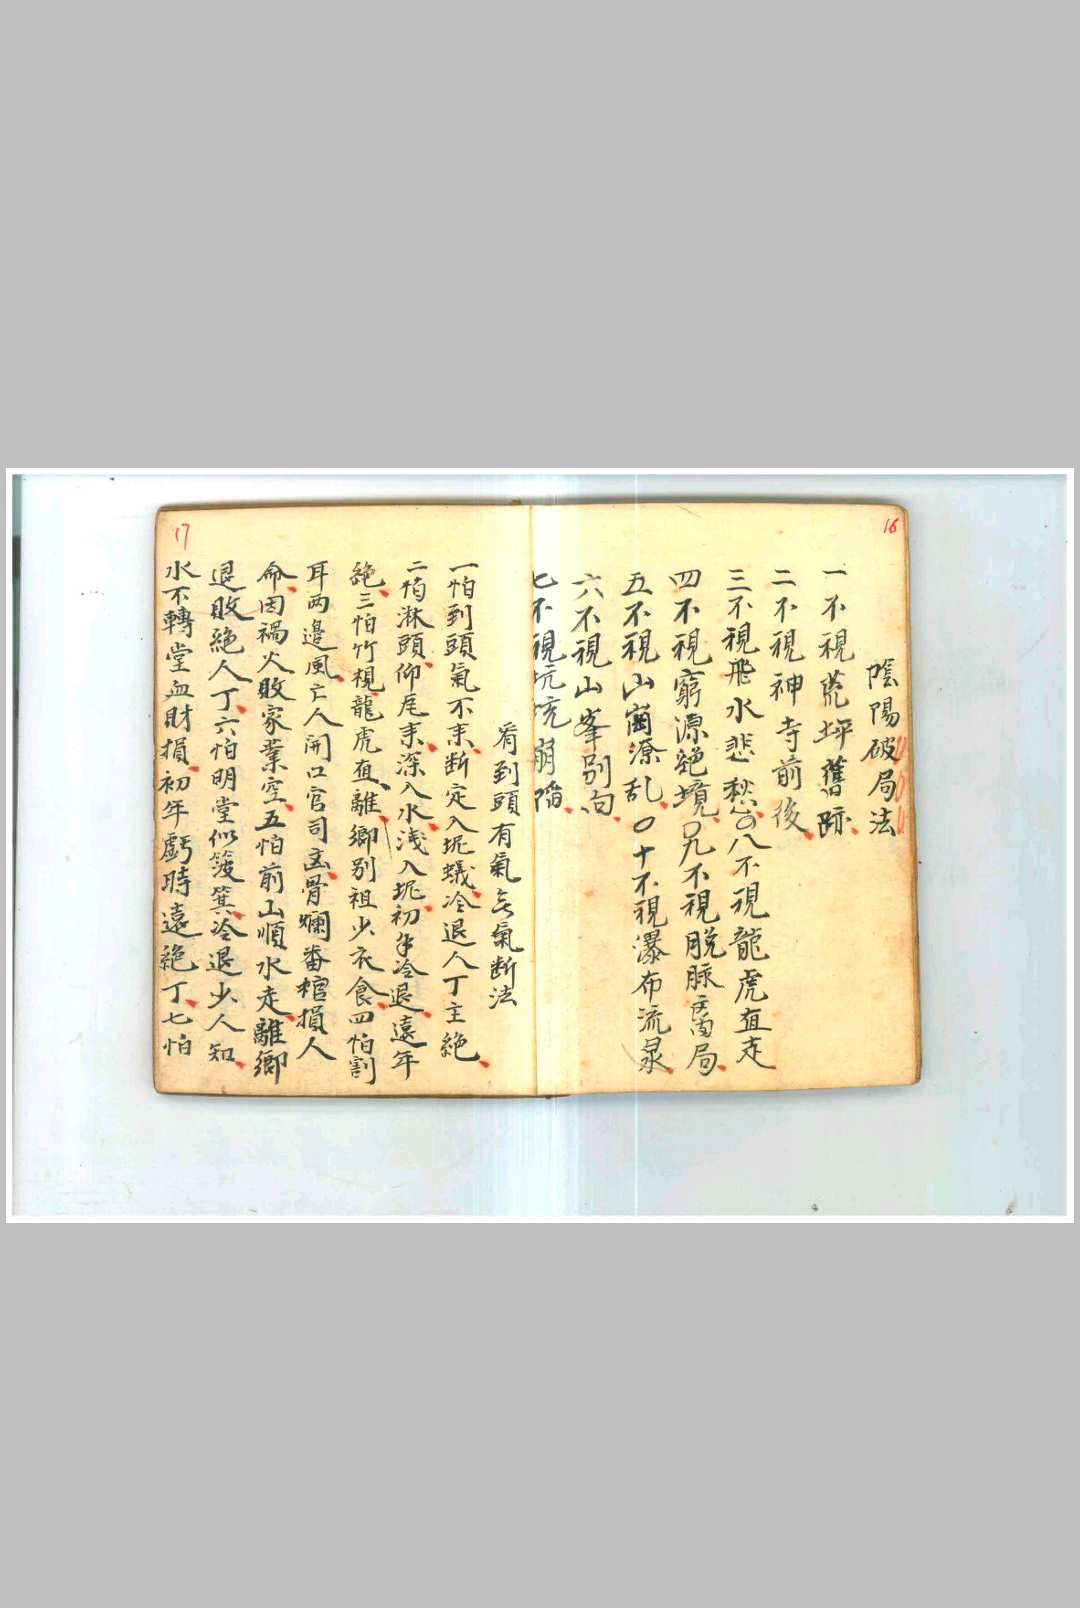 16
陰陽破局法
一不視荒坪舊跡
二不視神寺前後
三不視飛水悲愁 八不視龍虎直走
四不視窮源絕境 九不視脫脈 局
五不視山崗潦乱 〇十不視瀑布流泉
六不視山峯别向
七不視坑坑崩陷
17
看到頭有氣无氣断法
一怕到頭氣不来断定入坭蟻冷退人丁主絕
二怕淋頭仰尾来深入水浅入坭初年冷退遠年
絕三怕竹梘龍虎直離鄉别祖少衣食四怕割
耳两邊風亡人開口官司 骨爛畨棺損人
命因禍火敗家業空五怕前山順水走離鄉
退敗絕人丁六怕明堂似 箕冷退少人知
水不轉堂血財損初年虧時遠絕丁七怕